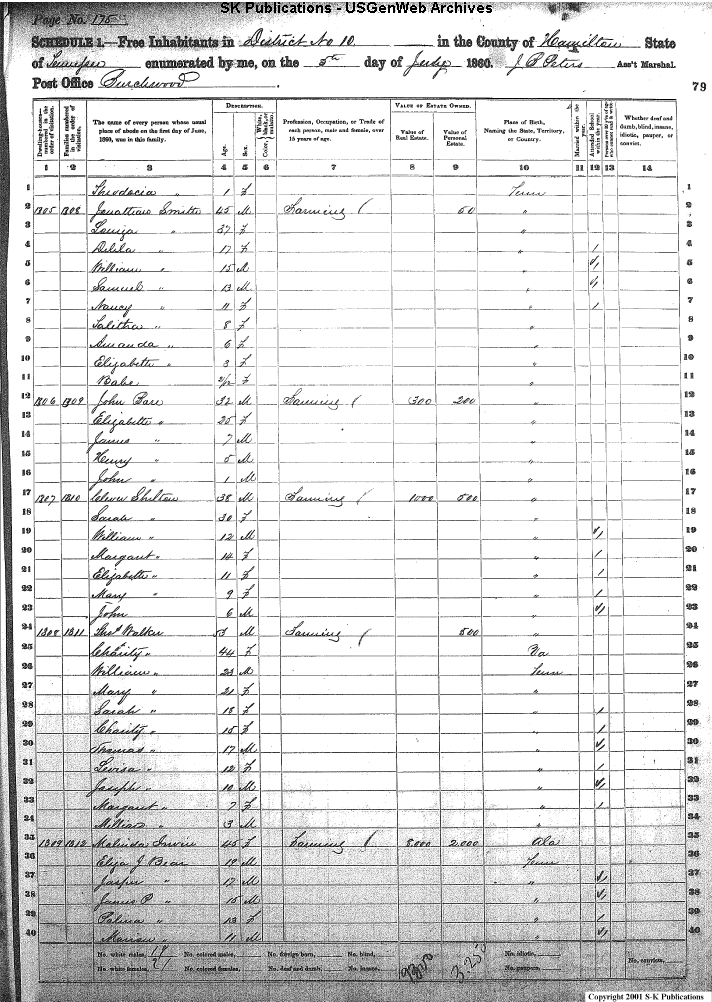 SK Publications - USGenWeb Archives
Page No. 175
SCHEDULE 1.—Free Inhabitants in District No 10 in the County of Hamilton State
of enumerated by me, on the 5th day of July 1860. Ass't Marshal.
Post Office Burchwood
79
Dwelling-houses—numbered in the order of visitation. Families numbered in the order of visitation. The name of every person whose usual place of abode on the first day of June, 1860, was in this family. DESCRIPTION. Age. Sex. Color, White, black, or mulatto. Profession, Occupation, or Trade of each person, male and female, over 15 years of age. VALUE OF ESTATE OWNED. Value of Real Estate. Value of Personal Estate. Place of Birth, Naming the State, Territory, or Country. Married within the year. Attended School within the year. Whether deaf and dumb, blind, insane, idiotic, pauper, or convict.
1 2 3 4 5 6 7 8 9 10 11 12 13 14
1 Theodocia " 1 F Tenn 1
2 1305 1308 Jonathan Smith 45 M Farming 50 " 2
3 Louiza " 37 F " 3
4 Delila " 17 F " 1 4
5 William " 15 M " 1 5
6 Samuel " 13 M " 1 6
7 Nancy " 11 F " 1 7
8 Talitha " 8 F " 8
9 Amanda " 6 F " 9
10 Elizabeth " 3 F " 10
11 Babe 2/12 F " 11
12 1306 1309 John Bare 32 M Farming 300 200 " 12
13 Elizabeth " 25 F " 13
14 James " 7 M " 14
15 Henry " 5 M " 15
16 John " 1 M " 16
17 1307 1310 Shelton 38 M Farming 1000 500 " 17
18 Sarah " 30 F " 18
19 William " 12 M " 1 19
20 Margaret " 14 F " 1 20
21 Elizabeth " 11 F " 1 21
22 Mary " 9 F " 1 22
23 John 6 M " 1 23
24 1308 1311 Thos Walker 53 M Farming 500 " 24
25 Charity " 44 F Va 25
26 William " 23 M Tenn 26
27 Mary " 21 F " 27
28 Sarah " 18 F " 1 28
29 Charity " 15 F " 1 29
30 Thomas " 17 M " 1 30
31 Levisa " 12 F " 1 31
32 Joseph " 10 M " 1 32
33 Margaret " 7 F " 1 33
34 " 3 M " 34
35 1309 1312 Malinda Irvin 45 F Farming 8,000 2,000 Ala 35
36 Eliza J Bear 19 M Tenn 36
37 Jasper " 17 M " 1 37
38 James P " 15 M " 1 38
39 Palina " 13 F " 1 39
40 Marion " 11 M " 1 40
No. white males, 19 No. colored males, No. foreign born, No. blind, 9300 3.250 No. idiotic, No. convicts,
No. white females, 21 No. colored females, No. deaf and dumb, No. insane, No. paupers,
Copyright 2001 S-K Publications